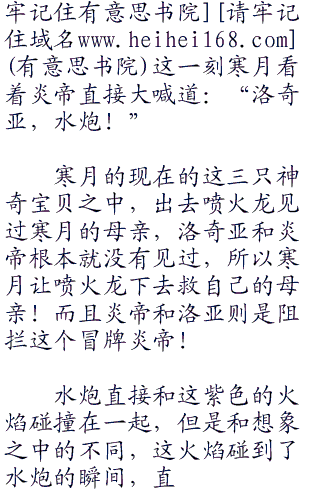 牢记住有意思书院][请牢记
住域名www.heihei168.com]
(有意思书院)这一刻寒月看
着炎帝直接大喊道：“洛奇
亚，水炮！”
寒月的现在的这三只神
奇宝贝之中，出去喷火龙见
过寒月的母亲，洛奇亚和炎
帝根本就没有见过，所以寒
月让喷火龙下去救自己的母
亲！而且炎帝和洛亚则是阻
拦这个冒牌炎帝！
水炮直接和这紫色的火
焰碰撞在一起，但是和想象
之中的不同，这火焰碰到了
水炮的瞬间，直